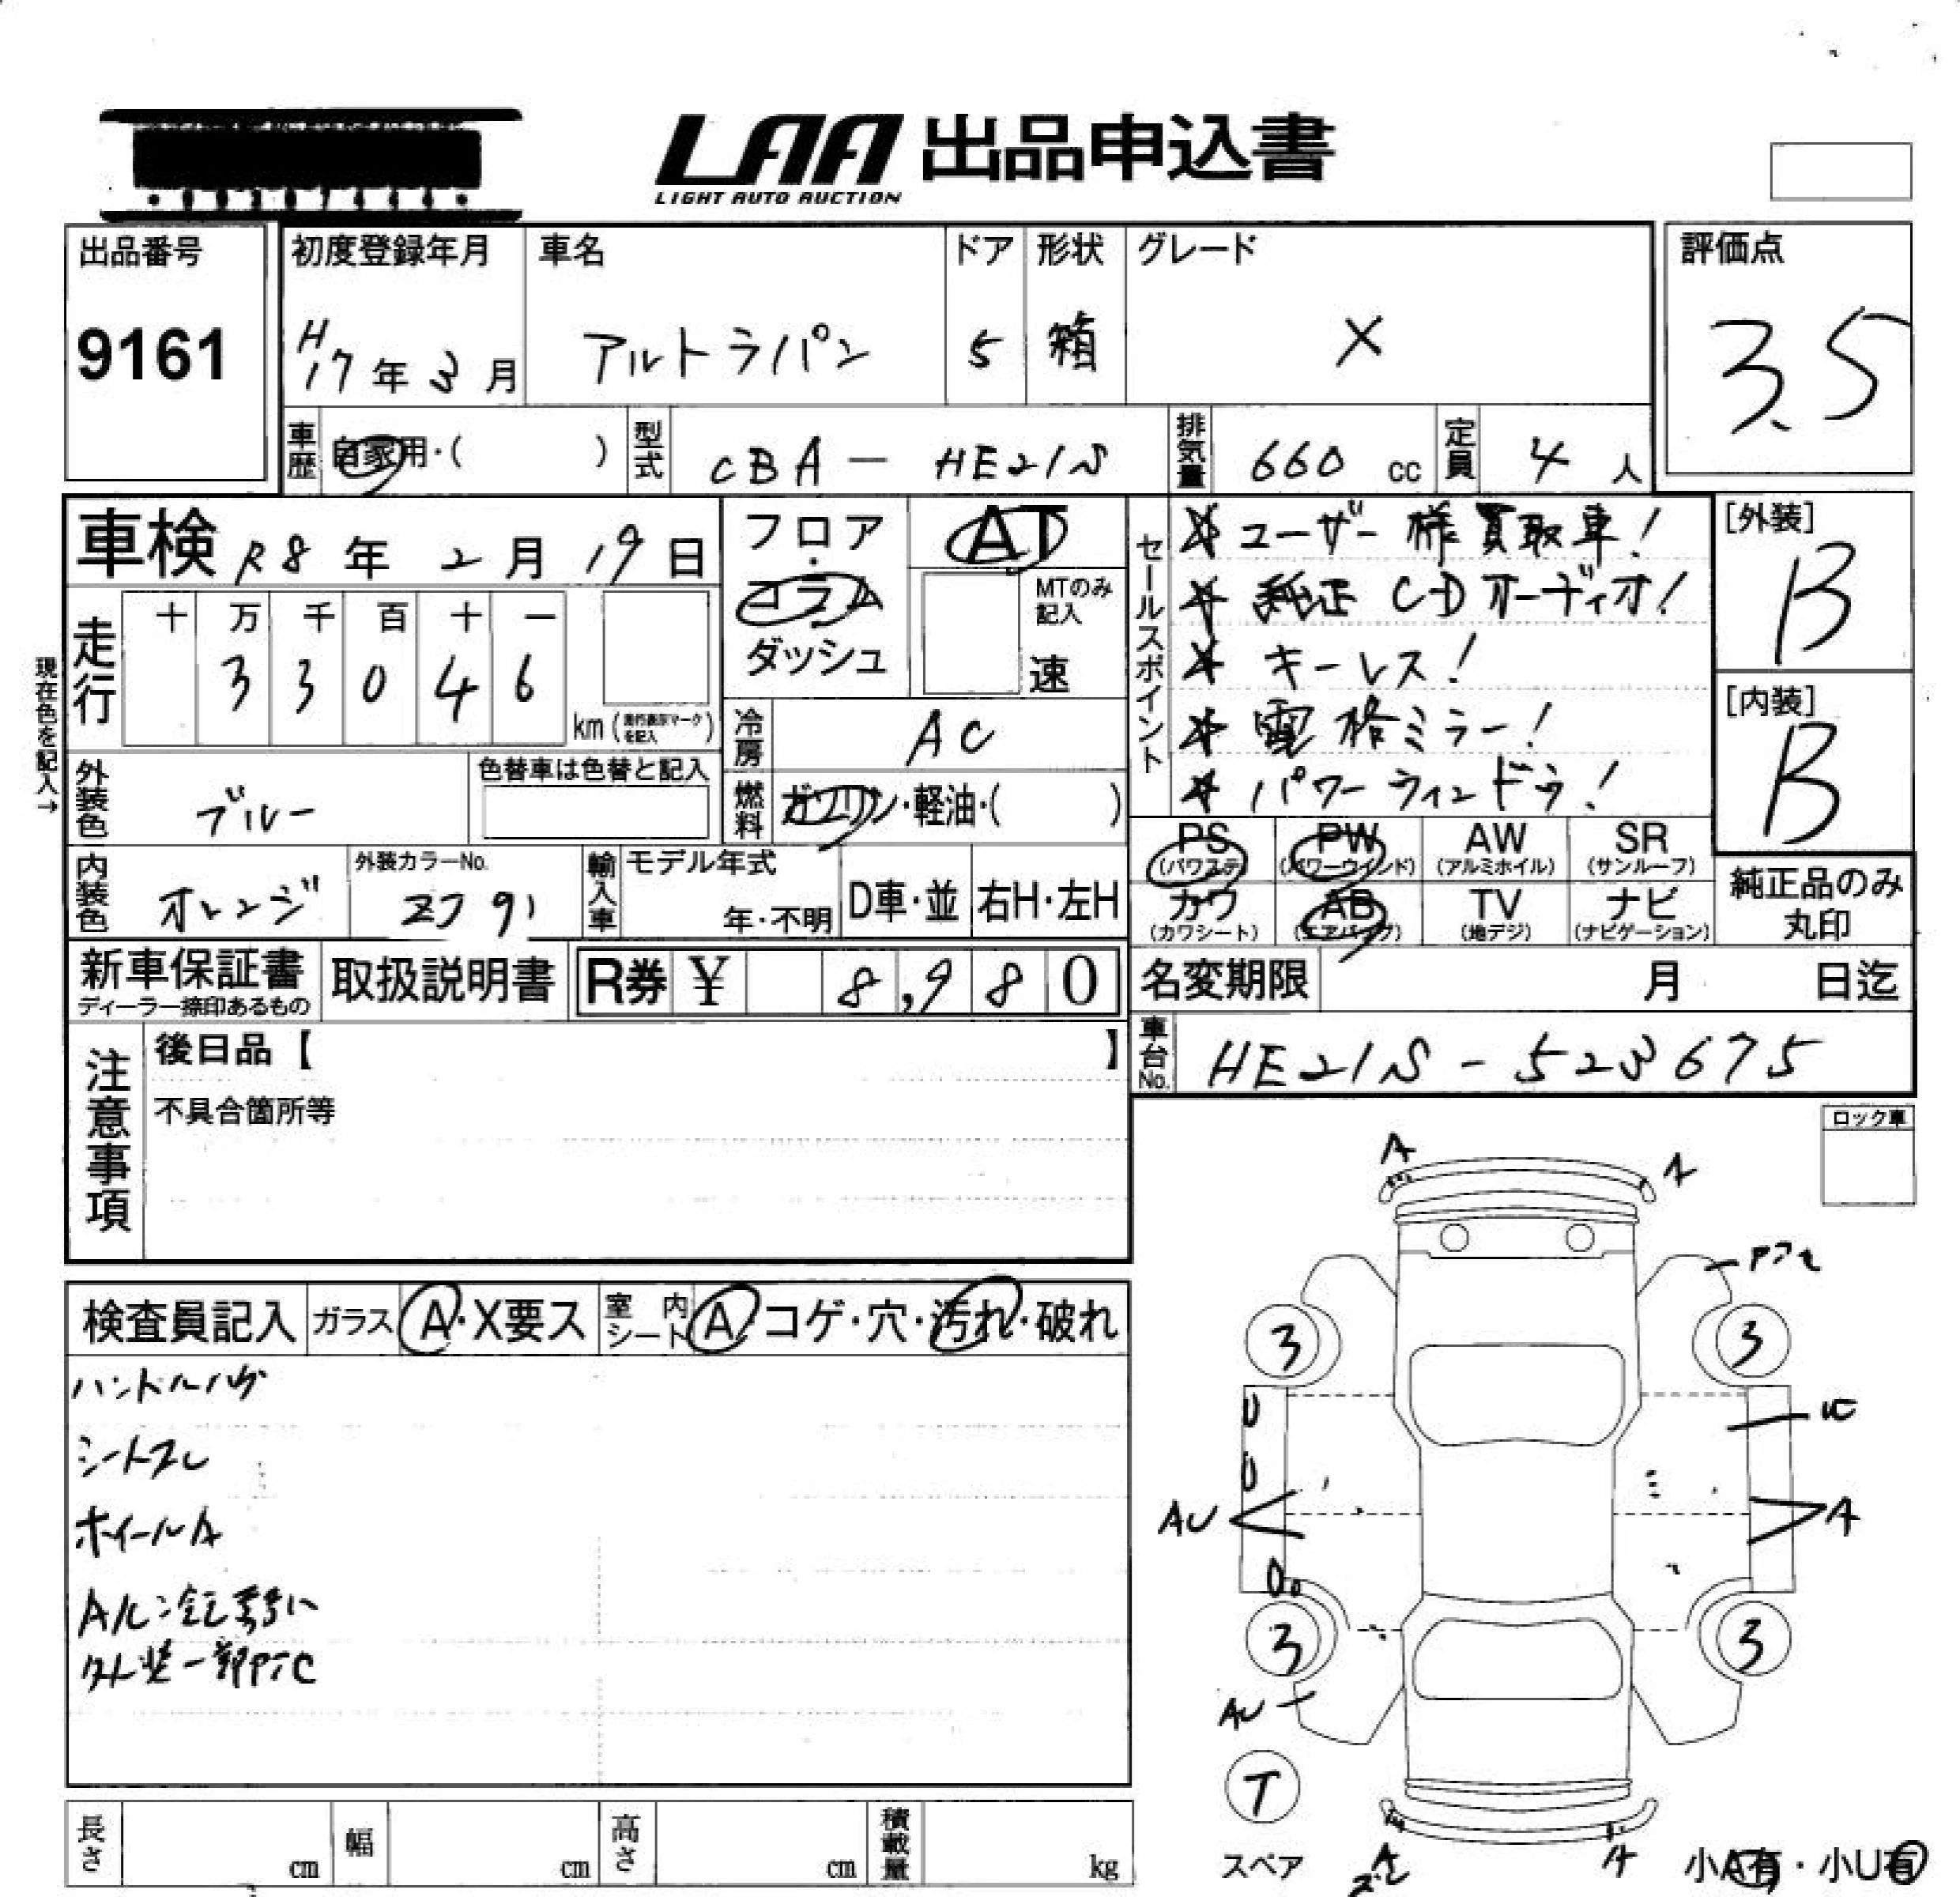 LAA 出品申込書
LIGHT AUTO AUCTION
出品番号
9161
初度登録年月
H17年3月
車名
アルトラパン
ドア
5
形状
箱
グレード
X
評価点
3.5
車歴
自家用・( )
型式
CBA - HE21S
排気量
660 cc
定員
4 人
車検 R8年 2月 19日
走行
十 万 千 百 十 一
3 3 0 4 6
km (走行表示マークを記入)
現在色を記入→
フロア・
コラム
ダッシュ
AT
MTのみ記入
速
冷房
AC
燃料
ガソリン・軽油・( )
セールスポイント
ユーザー様買取車!
純正 CDオーディオ!
キーレス!
電格ミラー!
パワーウィンドウ!
[外装]
B
[内装]
B
外装色
ブルー
色替車は色替と記入
内装色
オレンジ
外装カラーNo.
ZJ91
輸入車
モデル年式
年・不明
D車・並
右H・左H
PS (パワステ)
PW (パワーウインド)
AW (アルミホイル)
SR (サンルーフ)
カワ (カワシート)
AB (エアバッグ)
TV (地デジ)
ナビ (ナビゲーション)
純正品のみ
丸印
新車保証書
ディーラー捺印あるもの
取扱説明書
R券 ¥ 8,980
名変期限 月 日迄
車台No.
HE21S-523675
注意事項
後日品【 】
不具合箇所等
ロック車
検査員記入
ガラス A・X要ス
室内シート A コゲ・穴・汚れ・破れ
ハンドルハゲ
シートスレ
ホイールA
外装一部PTC
A
A
3
3
U
U
AU
A
3
3
AU
T
スペア
A
A
小A有・小U有
長さ cm
幅 cm
高さ cm
積載量 kg